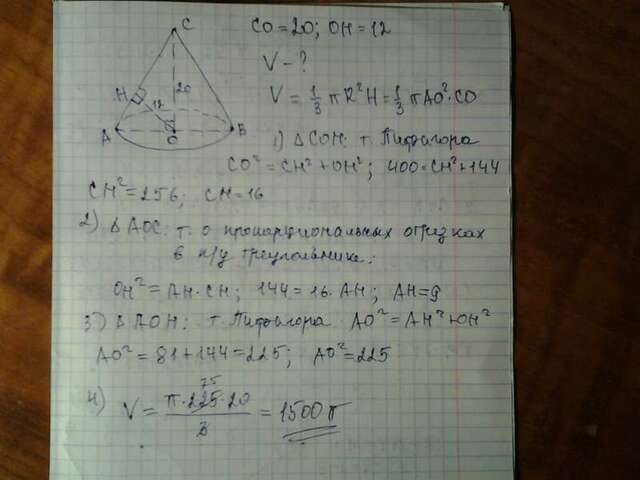 C
CO = 20; OH = 12
V - ?
20
H
12
A
O
B
V = 1/3 πR²H = 1/3 πAO²·CO
1) △COH: т. Пифагора
CO² = CH² + OH²; 400 = CH² + 144
CH² = 256; CH = 16
2) △AOC: т. о пропорциональных отрезках
в п/у треугольнике:
OH² = AH·CH; 144 = 16·AH; AH = 9
3) △AOH: т. Пифагора AO² = AH² + OH²
AO² = 81 + 144 = 225; AO² = 225
75
4) V = π·225·20/3 = 1500π